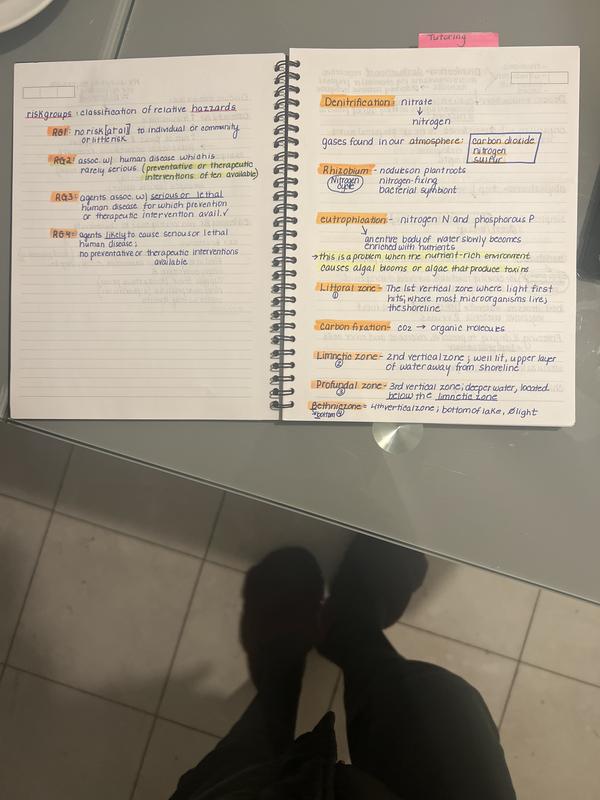 Tutoring
risk groups : classification of relative hazzards
RG1: no risk [at all] to individual or community
or little risk
RG2: assoc. w/ human disease which is
rarely serious (preventative or therapeutic
interventions often available)
RG3: agents assoc. w/ serious or lethal
human disease for which prevention
or therapeutic intervention avail. ✓
RG4: agents likely to cause serious or lethal
human disease;
no preventative or therapeutic interventions
available
Denitrification: nitrate
↓
nitrogen
gases found in our atmosphere: carbon dioxide
nitrogen
sulfur
Rhizobium - nodules on plant roots
Nitrogen nitrogen-fixing
cycle bacterial symbiont
eutrophication: - nitrogen N and phosphorous P
↓
an entire body of water slowly becomes
enriched with nutrients
→ this is a problem when the nutrient-rich environment
causes algal blooms or algae that produce toxins
Littoral zone - The 1st vertical zone where light first
① hits; where most microorganisms live;
the shoreline
Carbon fixation - CO2 → organic molecules
Limnetic zone - 2nd vertical zone ; well lit, upper layer
② of water away from shoreline
Profundal zone - 3rd vertical zone; deeper water, located
③ below the limnetic zone
Bethnic zone = 4th vertical zone; bottom of lake, Ø light
*bottom ④